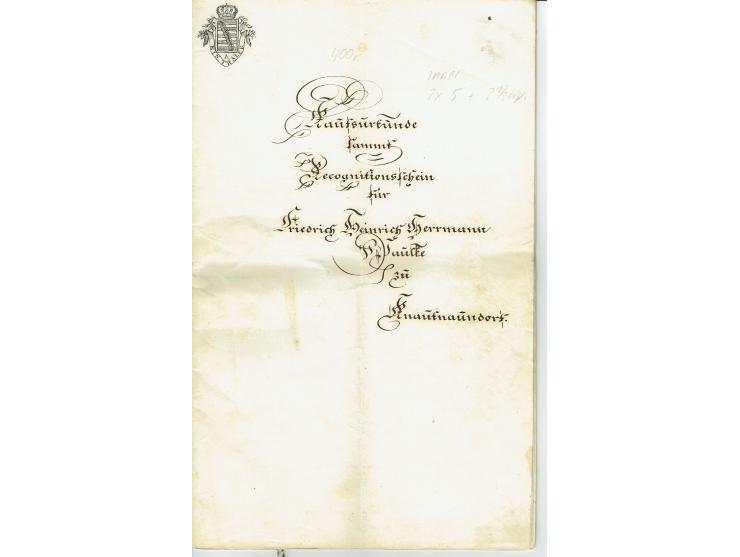 EIN THALER
400
Kaufsurkunde
sammt
Recognitionsschein
für
Friedrich Heinrich Herrmann
Paulke
zu
Knautnaundorf.